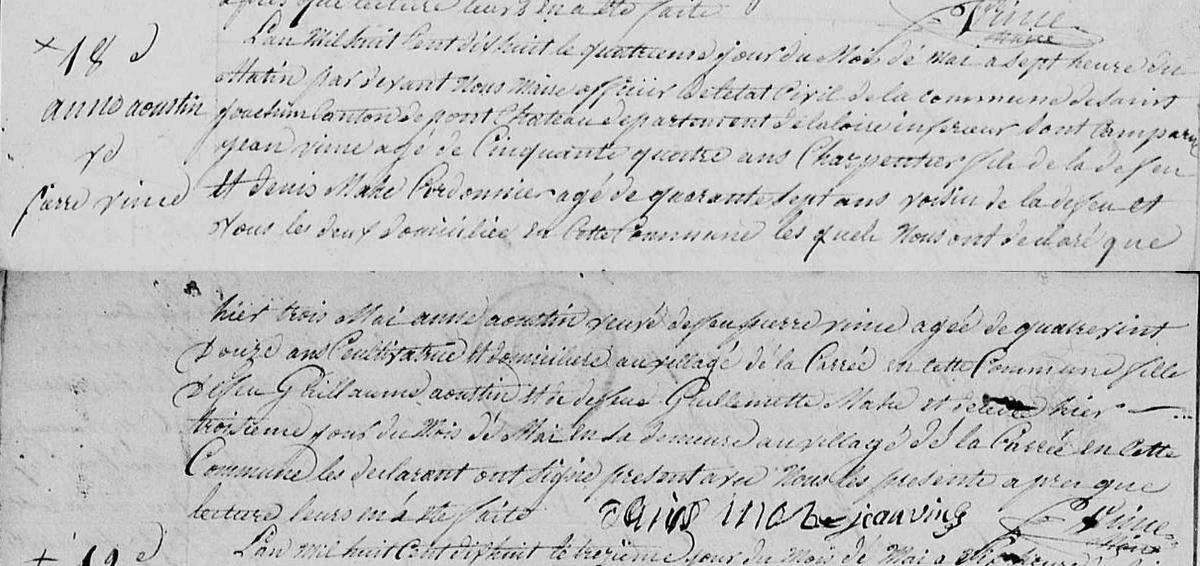 après que lecture leurs en a ete faite
Vince
Maire
+ 18 e
L'an mil huit Cent dishuit le quatrieme jour du Mois de Mai a sept heure du
Matin par devant Nous Maire officier de letat Civil de la commune de saint
anne aoustin
Joachim Canton de pont Chateau departement de la loire inferieur sont Comparu
jean vince agé de Cinquante quatre ans Charpentier fils de la defeu
ve
pierre vince
Et denis Mahe Cordonnier agé de quarante sept ans voisin de la defeu et
tous les deux domiciliée en Cette Commune les quels Nous ont declaré que
hier trois Mai anne aoustin veuve defeu pierre vince agée de quatrevint
douze ans Cultivatrice Et domiciliere au village de la Carrée en cette Commune fille
defeu Guillaume aoustin Et de defeue Guillemette Mahe et decedée hier
troisieme jour du Mois de Mai en sa demeure au village de la Carrée en Cette
Commune les declarant ont Signé present avec Nous les presente apres que
lecture leurs en a ete faite
denis mahe jean vince
Vince
Maire
+ 19 e
L'an mil huit Cent dishuit le trezieme jour du Mois de Mai a heure